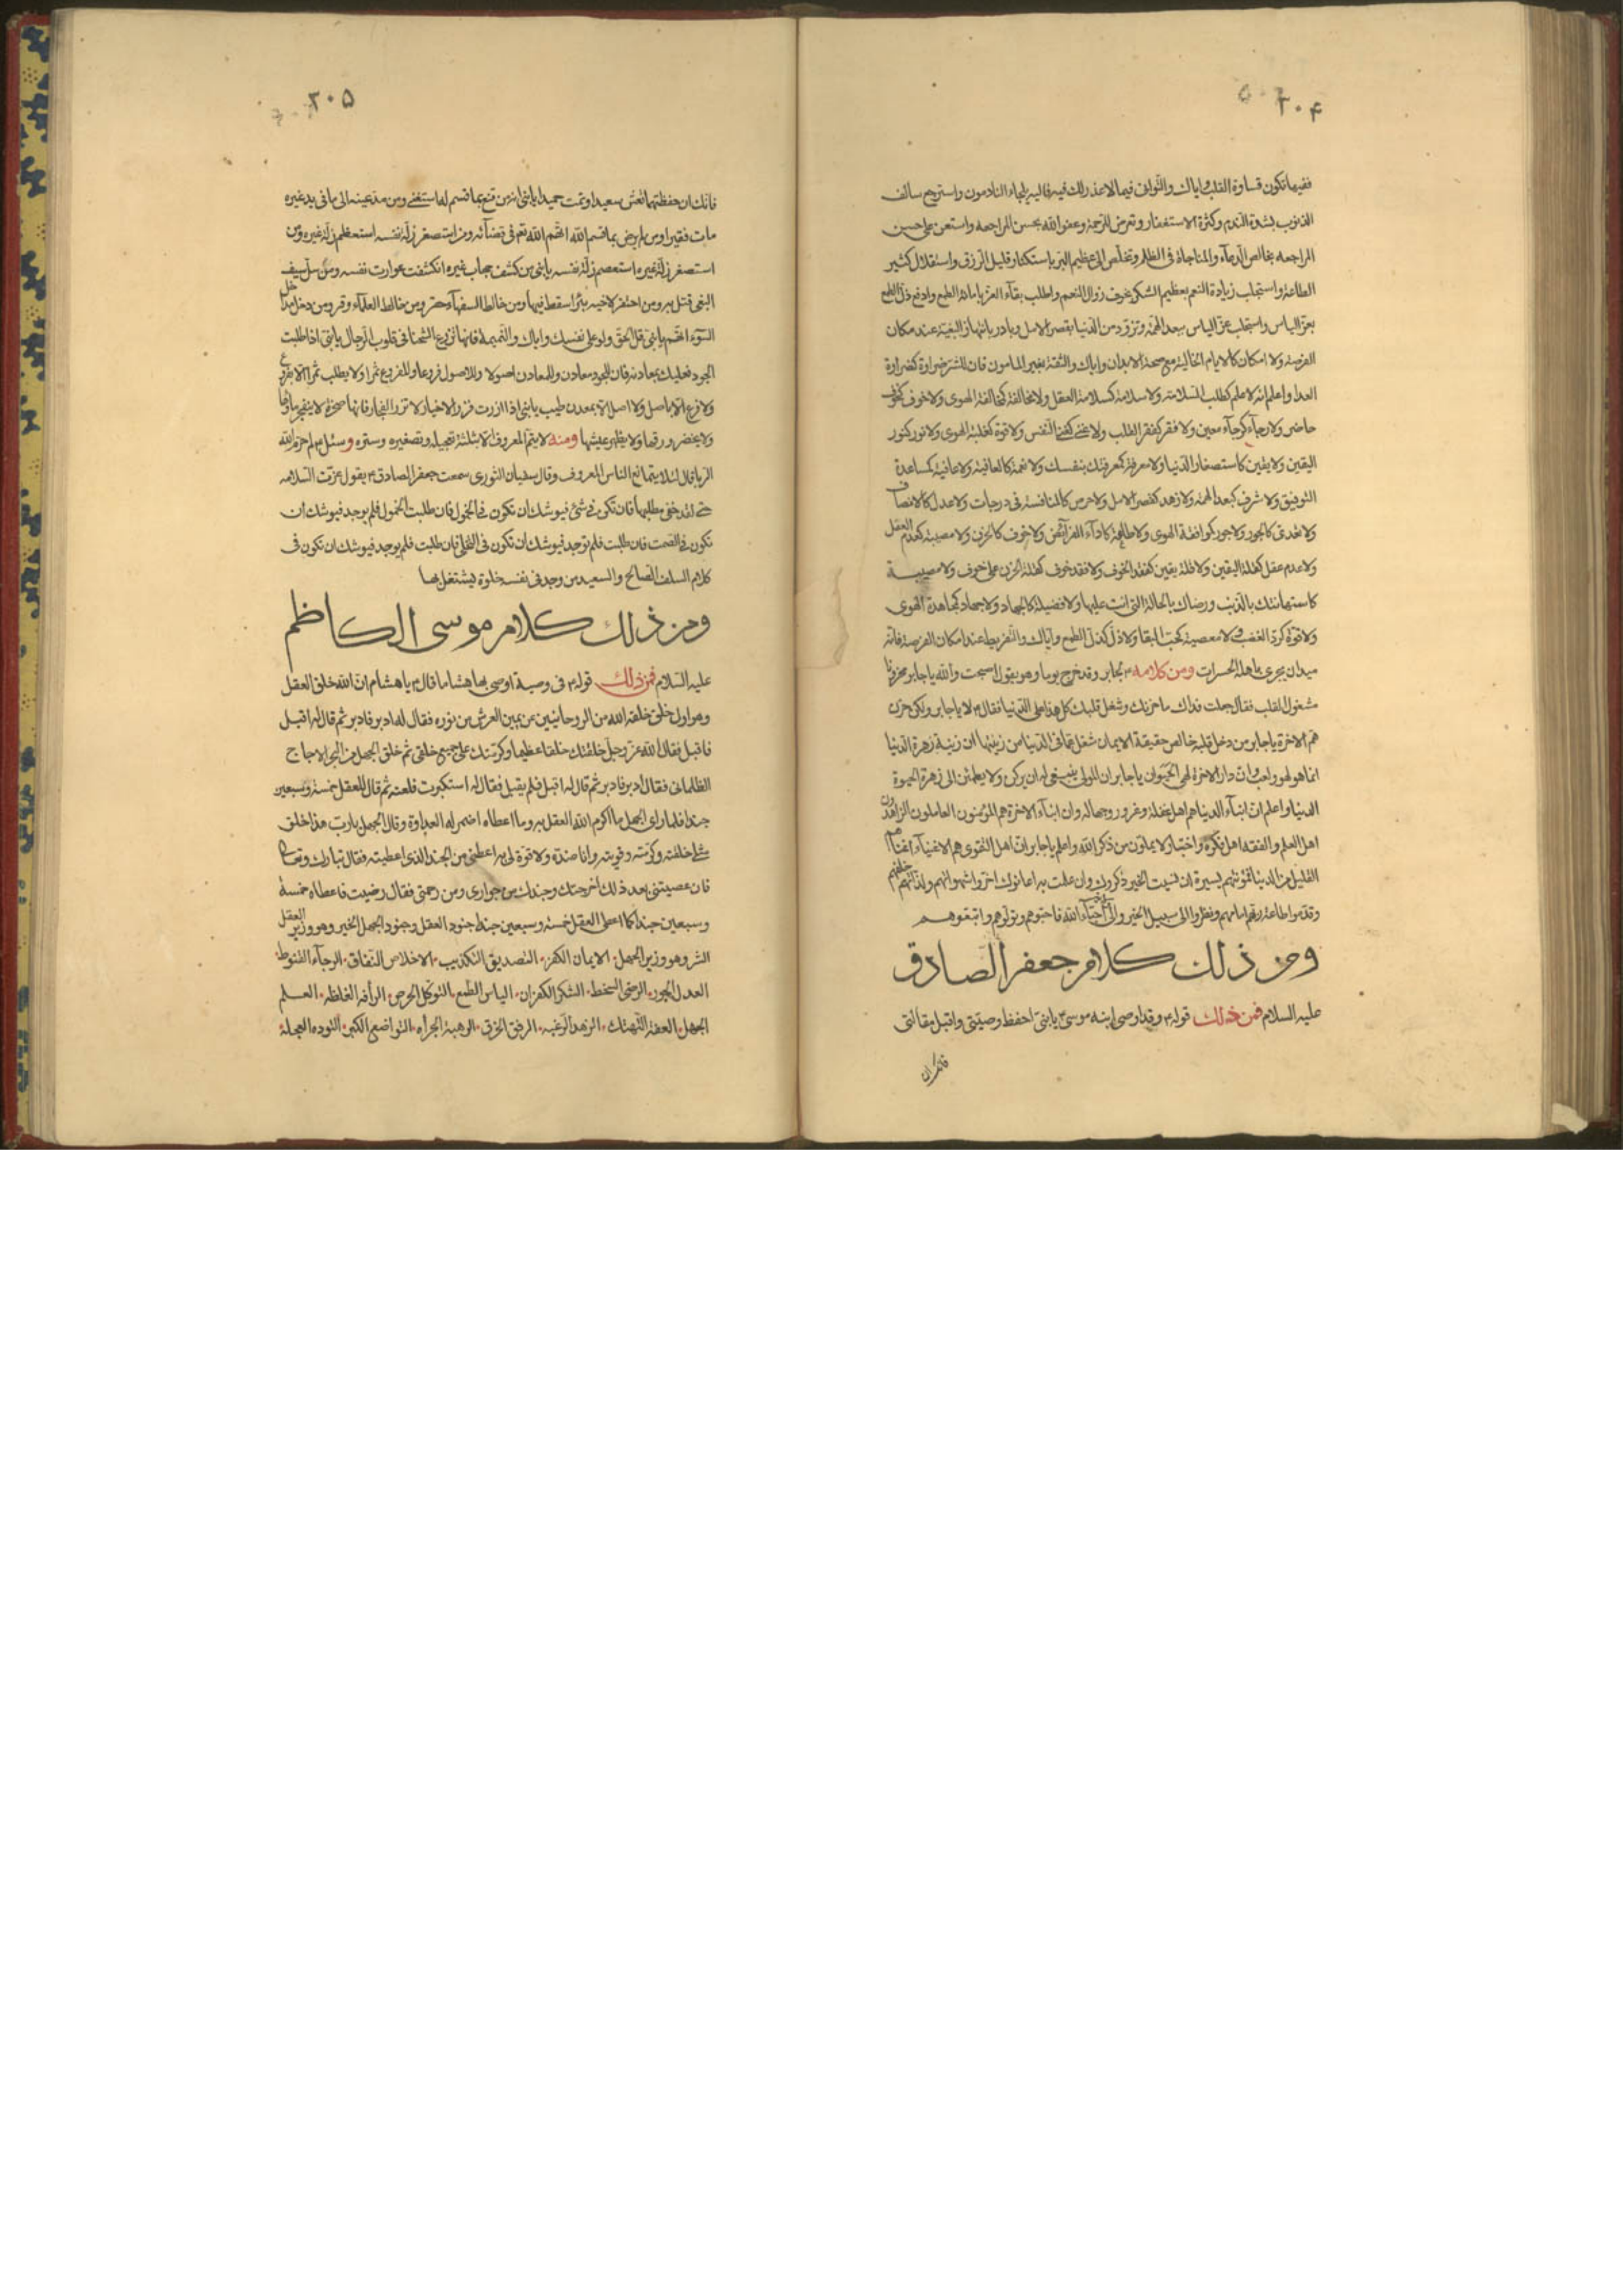 ٣٠۴
ففيها تكون قساوة القلب واياك والتوانى فيما لا عذر لك فيه فاليه يلجاء النادمون واسترجع سالف
الذنوب بشدة الندم وكثرة الاستغفار وتعرض للرحمة وعفو الله بحسن المراجعه واستعن على حسن
المراجعه بخالص الدعآء والمناجاة فى الظلم وتخلص الى عظيم الشكر باستكثار قليل الرزق واستقلال كثير
الطاعة واستجلب زيادة النعم بعظيم الشكر بخوف زوال النعم واطلب بقآء العز باماتة الطمع وادفع ذل الطمع
بعز الياس واستجلب عز الياس ببعد الهمه وتزود من الدنيا بقصر الامل وبادر بانتهاز البغية عند مكان
الفرصة ولا امكان كالايام الخالية مع صحة الابدان واياك والثقة بغير المامون فان للشر ضراوة كضراوة
الغدا واعلم انه لا علم كطلب السلامة ولا سلامة كسلامة العقل ولا مخالفة كمخالفة الهوى ولا خوف كخوف
حاضر ولا رجآء كرجآء معين ولا فقر كفقر القلب ولا غنى كغنى النفس ولا قوة كغلبة الهوى ولا نور كنور
اليقين ولا يقين كاستصغار الدنيا ولا معرفة كمعرفتك بنفسك ولا نعمة كالعافية ولا عافية كمساعدة
التوفيق ولا شرف كبعد الهمه ولا زهد كقصر الامل ولا حرص كالمنافسة فى درجات ولا عدل كالانصاف
ولا تعدى كالجور ولا جور كموافقة الهوى ولا طاعة كادآء الفرآئض ولا خوف كالحزن ولا مصيبة كعدم العقل
ولا عدم عقل كقلة اليقين ولا قلة يقين كفقد الخوف ولا فقد خوف كقلة الحزن على خوف ولا مصيبة
كاستهانتك بالذنب ورضاك بالحالة التى انت عليها ولا فضيلة كالجهاد ولا جهاد كمجاهدة الهوى
ولا قوة كرد الغضب ولا معصية كحب البقا ولا ذل كذل الطمع واياك والتفريط عند امكان الفرصة فانه
ميدان يجرى باهله الخسرات ومن كلامه ع لجابر وقد خرج يوما وهو يقول اصبحت والله يا جابر محزونا
مشغول القلب فقال جعلت فداك ما حزنك وشغل قلبك كل هذا على الدنيا فقال ع لا يا جابر ولكن حزن
هم الاخرة يا جابر من دخل قلبه خالص حقيقة الايمان شغل عما فى الدنيا من زينتها ان زينة زهرة الدنيا
انما هو لهو ولعب وان دار الاخرة لهى الحيوان يا جابر ان المؤمن لا ينبغى له ان يركن ولا يطمئن الى زهرة الحيوة
الدنيا واعلم ان ابنآء الدنيا هم اهل غفلة وغرور وجهالة وان ابنآء الاخرة هم المؤمنون العاملون الزاهدون
اهل العلم والفقه اهل فكرة واختبار لا يملون من ذكر الله واعلم يا جابر ان اهل التقوى هم الاغنيآء اغناهم
القليل من الدنيا فمؤنتهم يسيرة ان نسيت الخير ذكروك وان عملت به اعانوك اخروا شهواتهم ولذاتهم خلفهم
وقدموا طاعة ربهم امامهم ونظروا الى سبيل الخير والى احبآء الله فاحبوهم وتولوهم واتبعوهم
ومن ذلك كلام جعفر الصادق
عليه السلام فمن ذلك قوله ع وقد اوصى ابنه موسى ع يا بنى احفظ وصيتى واقبل مقالتى
فانك ان
٣٠۵
فانك ان حفظتها تعش سعيدا وتمت حميدا يا بنى انه من قنع بما قسم له استغنى ومن مد عينه الى ما فى يد غيره
مات فقيرا ومن لم يرض بما قسم الله اتهم الله تع فى قضآئه ومن استصغر زلة نفسه استعظم زلة غيره ومن
استصغر زلة غيره استعصم زلة نفسه يا بنى من كشف حجاب غيره انكشفت عورات نفسه ومن سل سيف
البغى قتل به ومن احتفر لاخيه بئرا سقط فيها ومن خالط السفهآء حقر ومن خالط العلمآء وقر ومن دخل مداخل
السوء اتهم يا بنى قل الحق ولو على نفسك واياك والنميمة فانها تزرع الشحنا فى قلوب الرجال يا بنى اذا طلبت
الجود فعليك بمعادنه فان للجود معادن وللمعادن اصولا وللاصول فروعا وللفروع ثمرا ولا يطلب ثمرا الا بفرع
ولا فرع الا باصل ولا اصل الا بمعدن طيب يا بنى اذا زرت فزر الاخيار ولا تزر الفجار فانها صخرة لا ينفجر ماؤها
ولا يخضر ورقها ولا يظهر عيشها ومنه لا يتم المعروف الا بثلثة تعجيله وتصغيره وستره وسئل ع لم حرم الله
الربا قال لئلا يتمانع الناس المعروف وقال سفيان الثورى سمعت جعفر الصادق ع يقول عزت السلامه
حتى لقد خفى مطلبها فان تكن فى شئ فيوشك ان تكون فى الخمول فان طلبت الخمول فلم يوجد فيوشك ان
تكون فى الصمت فان طلبت فلم توجد فيوشك ان تكون فى التخلى فان طلبت فلم يوجد فيوشك ان تكون فى
كلام السلف الصالح والسعيد من وجد فى نفسه خلوة ليشتغل بها
ومن ذلك كلام موسى الكاظم
عليه السلام فمن ذلك قوله ع فى وصية اوصى بها هشاما قال ع يا هشام ان الله خلق العقل
وهو اول خلق خلقه الله من الروحانيين عن يمين العرش من نوره فقال له ادبر فادبر ثم قال له اقبل
فاقبل فقال الله عز وجل خلقتك خلقا عظيما وكرمتك على جميع خلقى ثم خلق الجهل من البحر الاجاج
الظلمانى فقال ادبر فادبر ثم قال له اقبل فلم يقبل فقال له استكبرت فلعنه ثم قال للعقل خمسة وسبعين
جندا فلما راى الجهل ما اكرم الله العقل به وما اعطاه اضمر له العداوة وقال الجهل يا رب هذا خلق
مثلى خلقته وكرمته وقويته وانا ضده ولا قوة لى به اعطنى من الجند الذى اعطيته فقال تبارك وتعالى
فان عصيتنى بعد ذلك اخرجتك وجندك من جوارى ومن رحمتى فقال رضيت فاعطاه خمسة
وسبعين جندا كما اعطى العقل خمسة وسبعين جندا جنود العقل وجنود الجهل الخير وهو وزير العقل
الشر وهو وزير الجهل الايمان الكفر التصديق التكذيب الاخلاص النفاق الرجآء القنوط
العدل الجور الرضى السخط الشكر الكفران الياس الطمع التوكل الحرص الرأفه الغلظه العلم
الجهل العفة التهتك الزهد الرغبه الرفق الخرق الرهبة الجرأه التواضع الكبر التوده العجلة